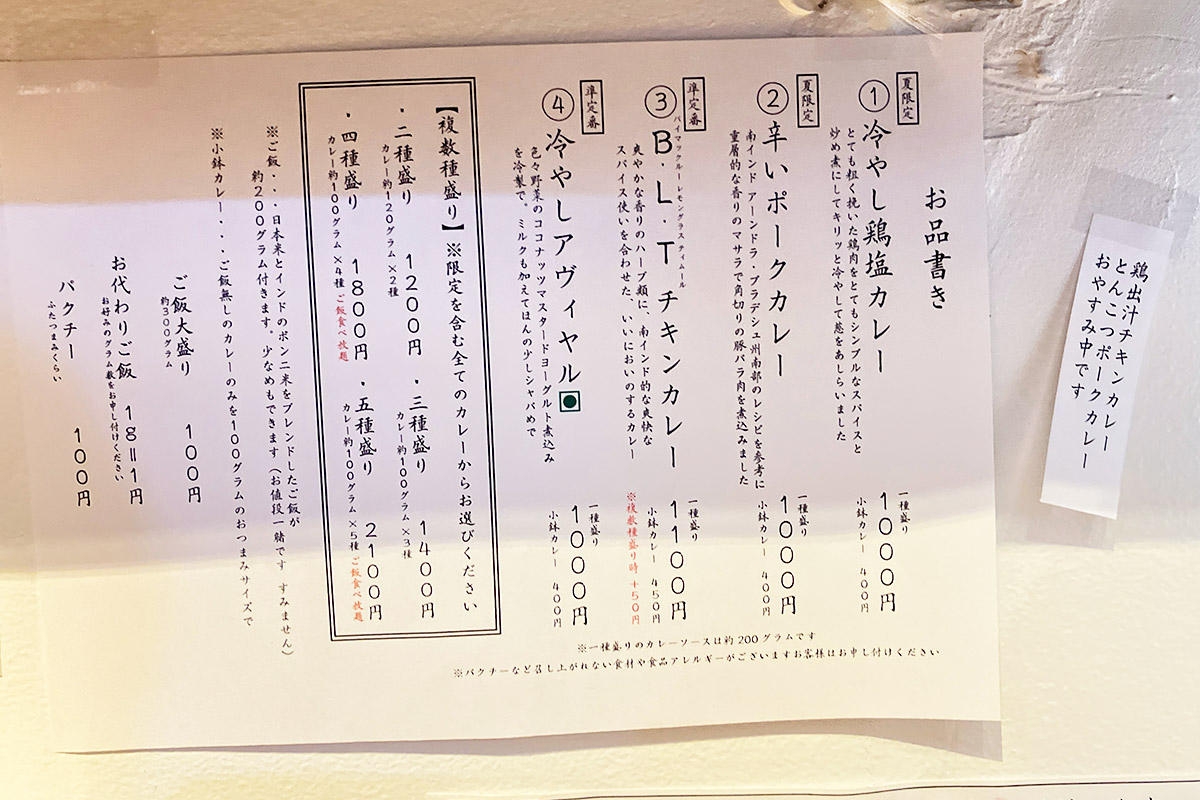 鶏出汁チキンカレー
とんこつポークカレー
おやすみ中です
お品書き
夏限定
①冷やし鶏塩カレー
とても粗く挽いた鶏肉をとてもシンプルなスパイスと
炒め煮にしてキリッと冷やして葱をあしらいました
一種盛り
1000円
小鉢カレー 400円
夏限定
②辛いポークカレー
南インド アーンドラ・プラデシュ州南部のレシピを参考に
重層的な香りのマサラで角切りの豚バラ肉を煮込みました
一種盛り
1000円
小鉢カレー 400円
準定番
バイマックルーレモングラスティムール
③B・L・Tチキンカレー
爽やかな香りのハーブ類に、南インド的な爽快な
スパイス使いを合わせた、いいにおいのするカレー
一種盛り
1100円
小鉢カレー 450円
※複数種盛り時+50円
準定番
④冷やしアヴィヤル
色々野菜のココナッツマスタードヨーグルト煮込み
を冷製で。ミルクも加えてほんの少しシャバめで
一種盛り
1000円
小鉢カレー 400円
※一種盛りのカレーソースは約200グラムです
※パクチーなど召し上がれない食材や食品アレルギーがございますお客様はお申し付けください
【複数種盛り】※限定を含む全てのカレーからお選びください
・二種盛り 1200円
カレー約120グラム×2種
・三種盛り 1400円
カレー約100グラム×3種
・四種盛り 1800円
カレー約100グラム×4種 ご飯食べ放題
・五種盛り 2100円
カレー約100グラム×5種 ご飯食べ放題
※ご飯・・・日本米とインドのポンニ米をブレンドしたご飯が
約200グラム付きます。少なめもできます(お値段一緒です すみません)
※小鉢カレー・・・ご飯無しのカレーのみを100グラムのおつまみサイズで
ご飯大盛り 100円
約300グラム
お代わりご飯 1g=1円
お好みのグラム数をお申し付けください
パクチー 100円
ふたつまみくらい